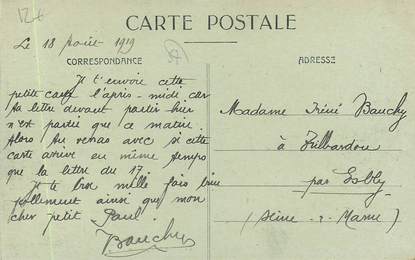 126
CARTE POSTALE
Le 18 Août 1919
CORRESPONDANCE
Je t'envoie cette
petite carte l'après-midi car
ta lettre devant partir hier
n'est partie que ce matin.
Alors tu verras avec si cette
carte arrive en même temps
que la lettre du 17.
Je te bise mille fois bien
follement ainsi que mon
cher petit Paul.
Bauchy
ADRESSE
Madame Iréné Bauchy
à Trilbardou
par Esbly
(Seine & Marne)